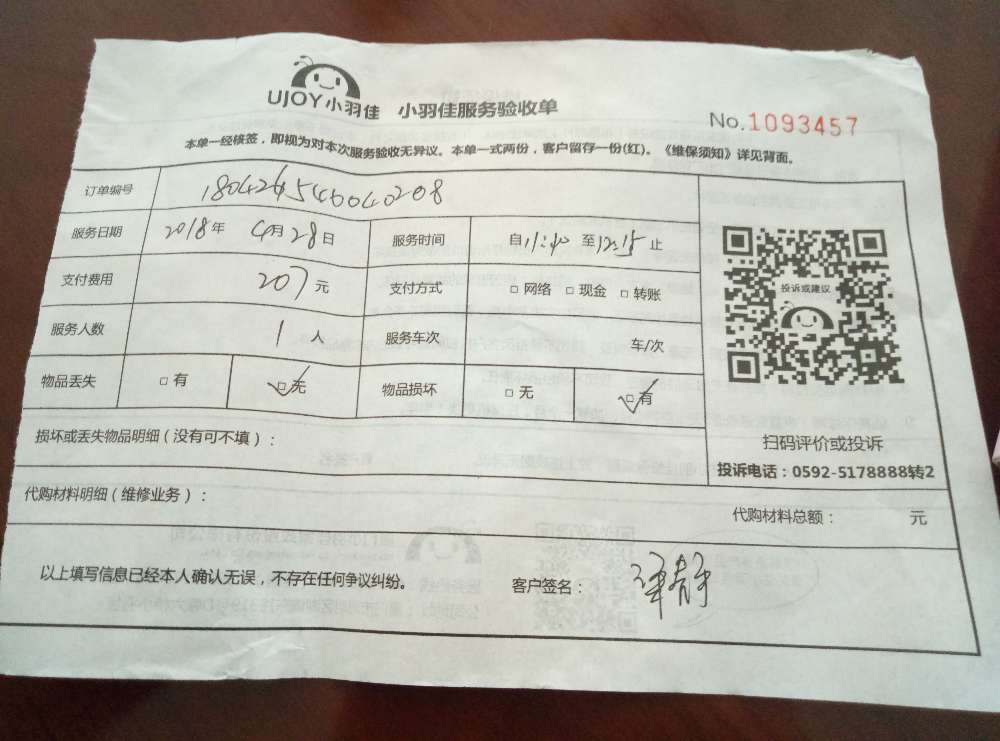 UJOY小羽佳 小羽佳服务验收单
No.1093457
本单一经核签，即视为对本次服务验收无异议。本单一式两份，客户留存一份(红)。《维保须知》详见背面。
订单编号
服务日期 2018年 4月28日 服务时间 自11:40 至12:15止
支付费用 207元 支付方式 □网络 □现金 □转账
服务人数 1人 服务车次 车/次
物品丢失 □有 □无 物品损坏 □无 □有
投诉或建议
扫码评价或投诉
投诉电话：0592-5178888转2
损坏或丢失物品明细（没有可不填）：
代购材料明细（维修业务）：
代购材料总额： 元
以上填写信息已经本人确认无误，不存在任何争议纠纷。 客户签名：